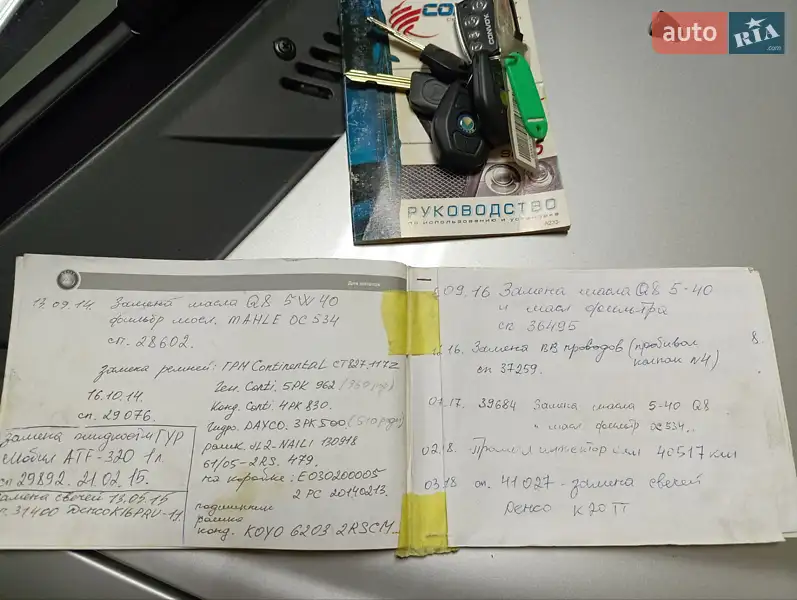 auto RIA.com
CONVOY
РУКОВОДСТВО
по использованию и установке
Для записей
13.09.14. Замена масла Q8 5W40
фильтр масл. MAHLE OC534
сп. 28602.
Замена ремней: ГРМ Continental CT827.117z
16.10.14. Ген. Conti. 5PK 962
сп. 29076. Конд. Conti. 4PK 830.
Гидро. DAYCO. 3PK500
ролик JL2-NAILI 130918
61/05-2RS. 479.
на коробке: E030200005
2 PC 20140213.
подшипник
ролика
конд. KOYO 6203 2RSCM
Замена жидкости ГУР
Мобил ATF-320 1л
сп 29892. 21.02.15.
Замена свечей 13.05.15
31400 Денсо K16PRU-11.
09.16 Замена масла Q8 5-40
и масл фильтра
сп 36495
.16. Замена ВВ проводов (пробивал колпак N4)
сп 37259.
07.17. 39684 Замена масла 5-40 Q8
и масл фильтр OC534..
02.18. 40517 км
03.18 сп. 41027 - замена свечей
Денсо K20TT